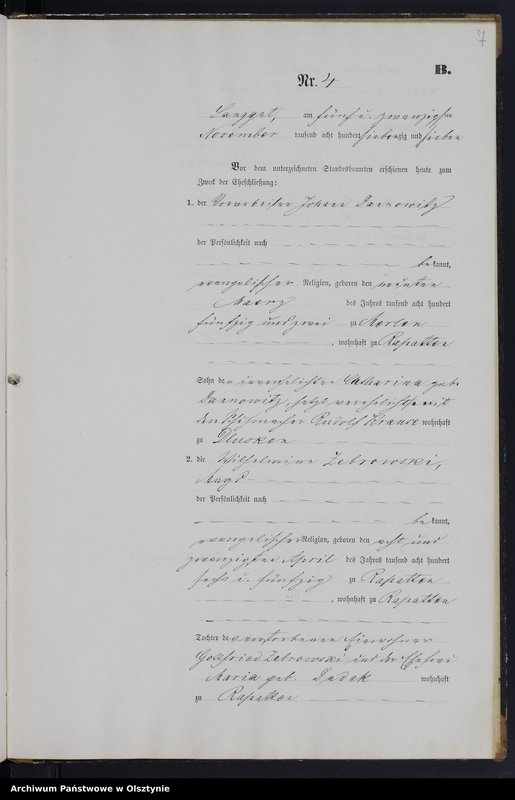 7
B.
Nr. 4
Langgut, am fünf u. zwanzigsten
November tausend acht hundert siebenzig und sieben
Vor dem unterzeichneten Standesbeamten erschienen heute zum
Zweck der Eheschließung:
1. der Vorarbeiter Johann Darnowitz
der Persönlichkeit nach
be kannt,
evangelischer Religion, geboren den neunten
Maerz des Jahres tausend acht hundert
fünfzig und zwei zu Morlen
, wohnhaft zu Rapatten
Sohn der unverehelichten Catharina geb.
Darnowitz, jetzt verehelicht mit
dem Schuhmacher Rudolf Krause wohnhaft
zu Dlusken
2. die Wilhelmine Zebrowski,
Magd
der Persönlichkeit nach
be kannt,
evangelischer Religion, geboren den acht und
zwanzigsten April des Jahres tausend acht hundert
sechs u. fünfzig zu Rapatten
, wohnhaft zu Rapatten
Tochter des verstorbenen Einwohner
Gottfried Zebrowski und der Ehefrau
Maria geb. Dudek wohnhaft
zu Rapatten
Archiwum Państwowe w Olsztynie